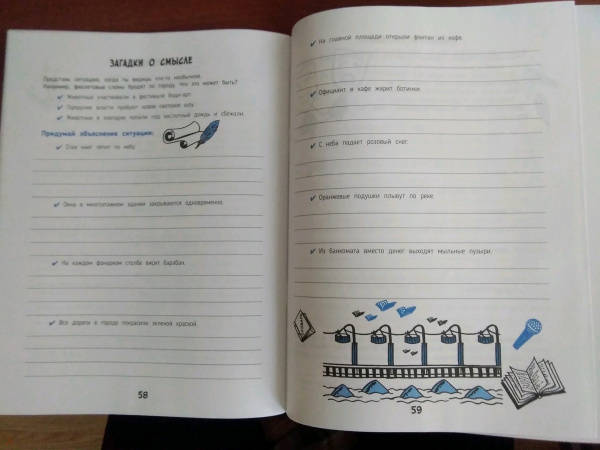 ЗАГАДКИ О СМЫСЛЕ
Представь ситуацию, когда ты видишь что-то необычное.
Например, фиолетовые слоны бродят по городу. Что это может быть?
✔ Животные участвовали в фестивале боди-арт.
✔ Городские власти пробуют новое световое шоу.
✔ Животные в зоопарке попали под кислотный дождь и сбежали.
Придумай объяснение ситуации:
✔ Стая книг летит по небу.
✔ Окна в многоэтажном здании закрываются одновременно.
✔ На каждом фонарном столбе висит барабан.
✔ Все дороги в городе покрасили зеленой краской.
58
✔ На главной площади открыли фонтан из кофе.
✔ Официант в кафе жарит ботинки.
✔ С неба падает розовый снег.
✔ Оранжевые подушки плывут по реке.
✔ Из банкомата вместо денег выходят мыльные пузыри.
59